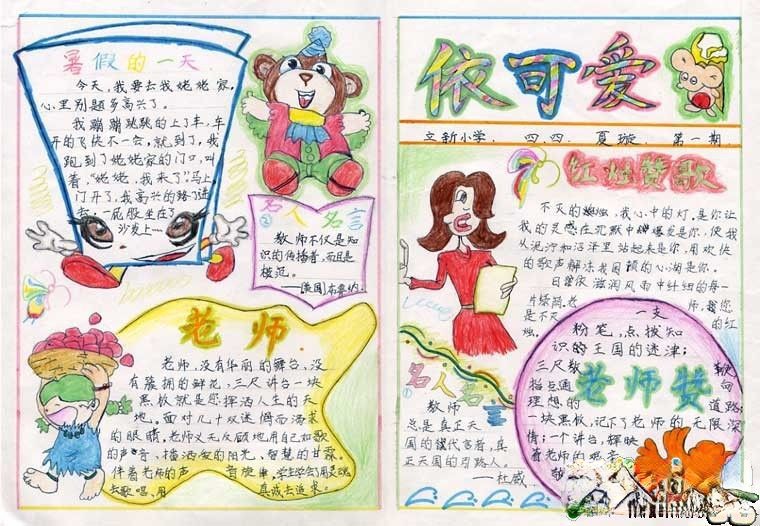 暑假的一天
今天,我要去我姥姥家,
心里别提多高兴了。
我蹦蹦跳跳的上了车,车
开的飞快不一会,就到了,我
跑到了姥姥家的门口,叫
着,“姥姥,我来了”马上
门开了,我高兴的
去,一屁股坐在了
沙发上……
名人名言
②
教师不仅是知
识的传播者,而且是
模范。
——[美国]布鲁纳
老师
老师,没有华丽的舞台,没
有簇拥的鲜花,三尺讲台一块
黑板就是您挥洒人生的天
地。面对几十双迷惘而渴求
的眼睛,老师义无反顾地用自己如歌
的声音,播洒爱的阳光、智慧的甘霖。
伴着老师的声音旋律,学生学会了用灵魂
去歌唱、用真诚去追求。
依可爱
立新小学、四、四、夏璇、第一期
红烛赞歌
不灭的红烛,我心中的灯。是你让
我的灵感在沉默中爆发是你,使我
从泥泞和沼泽里站起来是你,用欢快
的歌声解冻我困顿的心湖是你。
日营依滋润风雨中纤细的每一
片绿洲。老师,我您
是不灭的红
烛。
名人名言
①
教师
总是真正天
国的代言者,真
正天国的引路人。
——杜威
老师赞
一支
粉笔,点拨知
识的王国的迷津;
三尺教鞭
指点通
理想的道路;
一块黑板,记下了老师的无限深
情;一个讲台,辉映
着老师的艰辛